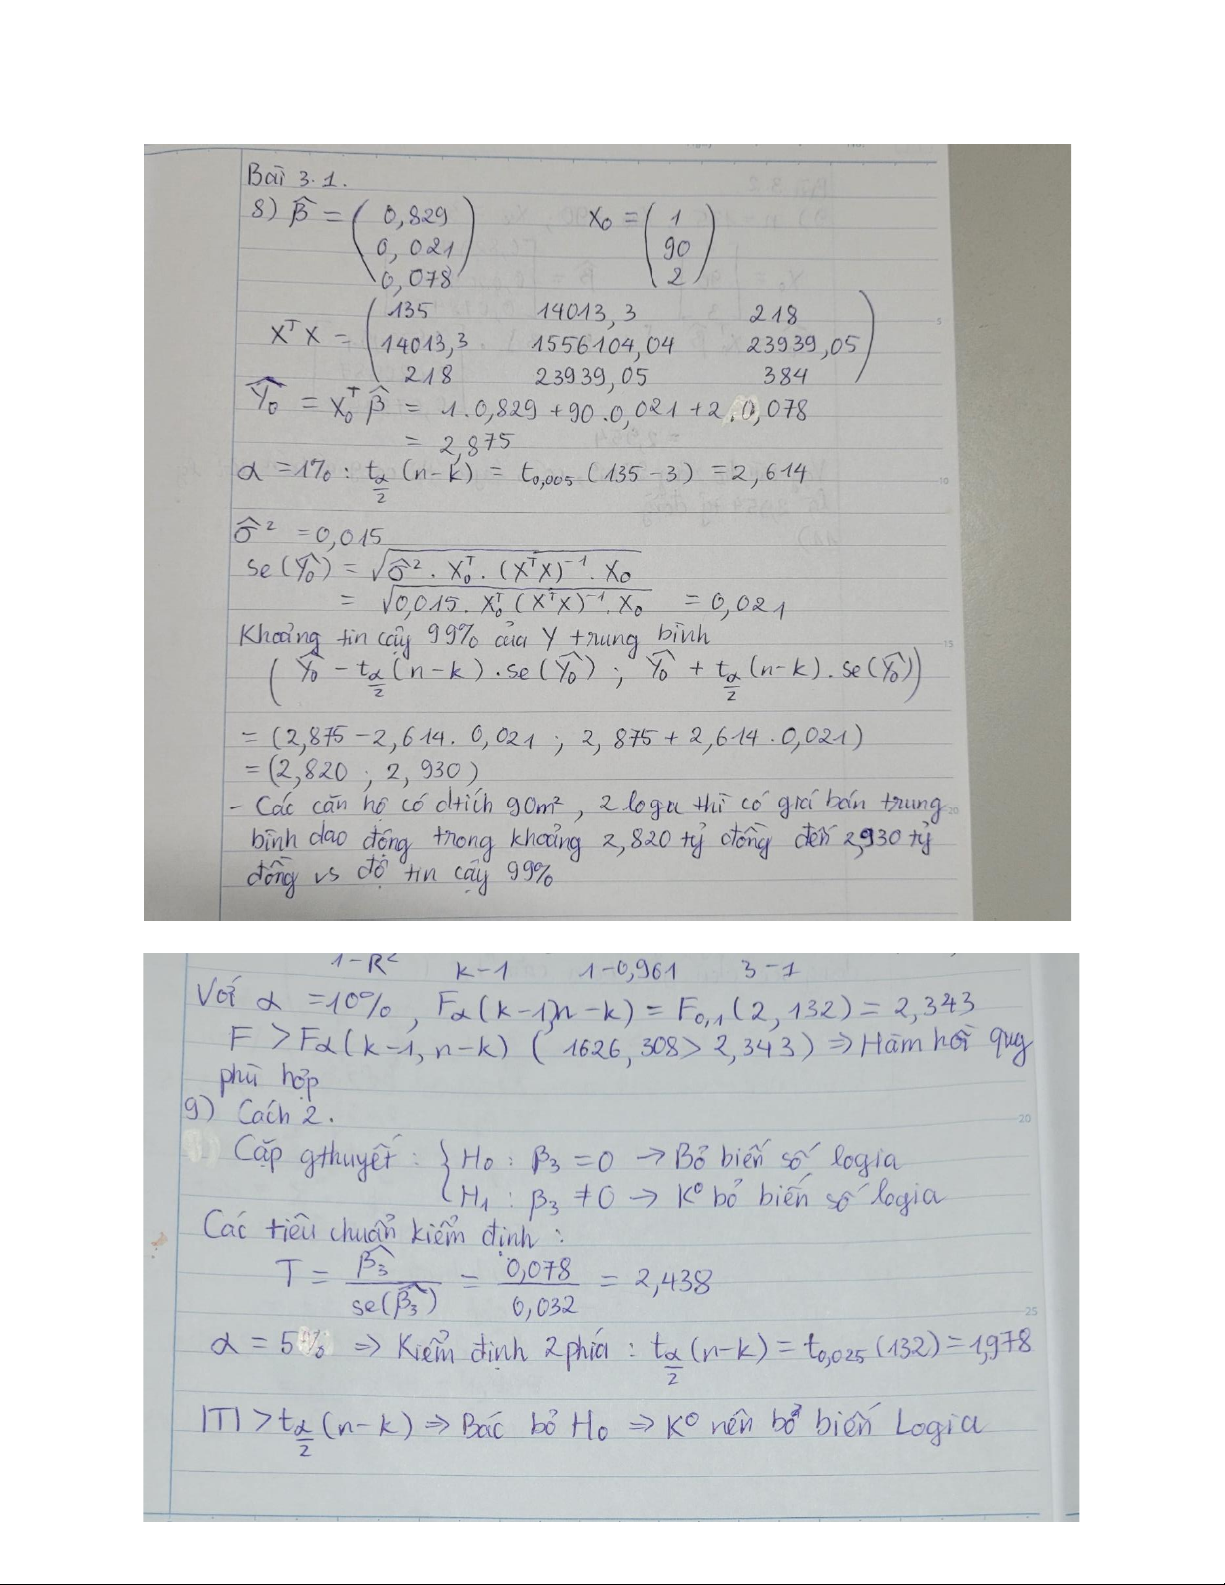 Bài 3.1.
8) β̂ = ( 0,829    X₀ = ( 1
0,021    90
0,078 )    2 )
XᵀX = ( 135    14013,3    218
14013,3    1556104,04    23939,05
218    23939,05    384 )
Ŷ₀ = X₀ᵀ β̂ = 1.0,829 + 90.0,021 + 2.0,078
= 2,875
α = 1% : t_{α/2} (n-k) = t₀,₀₀₅ (135-3) = 2,614
σ̂² = 0,015
se(Ŷ₀) = √(σ̂² . X₀ᵀ . (XᵀX)⁻¹ . X₀)
= √(0,015. X₀ᵀ (XᵀX)⁻¹. X₀) = 0,021
Khoảng tin cậy 99% của Y trung bình
( Ŷ₀ - t_{α/2} (n-k) . se(Ŷ₀) ; Ŷ₀ + t_{α/2} (n-k) . se(Ŷ₀) )
= (2,875 - 2,614. 0,021 ; 2,875 + 2,614 . 0,021)
= (2,820 ; 2,930)
- Các căn hộ có dtích 90m², 2 logia thì có giá bán trung
bình dao động trong khoảng 2,820 tỷ đồng đến 2,930 tỷ
đồng vs độ tin cậy 99%
1-R²    k-1    1-0,961    3-1
Với α = 10%, Fα(k-1,n-k) = F₀,₁(2,132) = 2,343
F > Fα(k-1, n-k) ( 1626,308 > 2,343) ⇒ Hàm hồi quy
phù hợp
9) Cách 2.
Cặp gthuyết : { H₀ : β₃ = 0 → Bỏ biến số logia
H₁ : β₃ ≠ 0 → K⁰ bỏ biến số logia
Các tiêu chuẩn kiểm định :
T = β̂₃ / se(β̂₃) = 0,078 / 0,032 = 2,438
α = 5% ⇒ Kiểm định 2 phía : t_{α/2} (n-k) = t₀,₀₂₅ (132) = 1,978
|T| > t_{α/2} (n-k) ⇒ Bác bỏ H₀ ⇒ K⁰ nên bỏ biến Logia